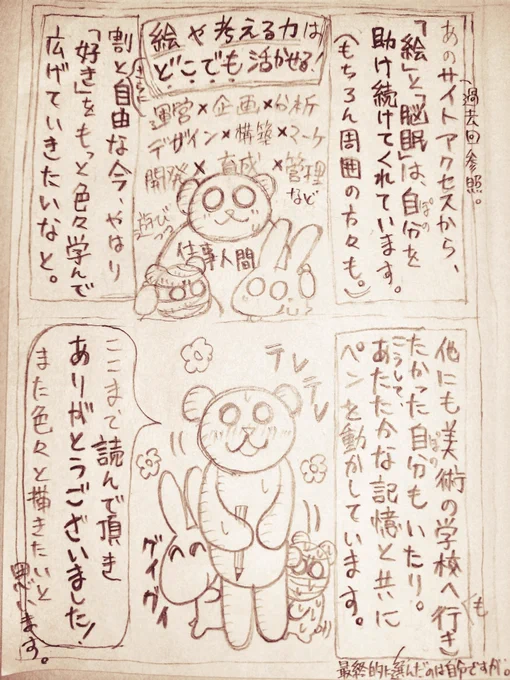 あのサイトアクセスから、
(過去回参照。
「絵」と「脳眠」は、自分を
ぽの
助け続けてくれています。
(もちろん周囲の方々も。)
絵や考える力は
どこでも活かせる!
運営×企画×分析
デザイン×構築×マーケ
開発×育成×管理
など
遊びつつ
仕事人間
割と自由な今、やはり
「好き」をもっと色々学んで
広げていきたいなと。
他にも美術の学校へ行き
も
たかった自分もいたり。
ぽの
こうして、
あたたかな記憶と共に
ペンを動かしています。
最終的に選んだのは自分ですが。
テレ
テレ
グイグイ
ここまで読んで頂き
ありがとうございました!
また色々と描きたいと
思います。